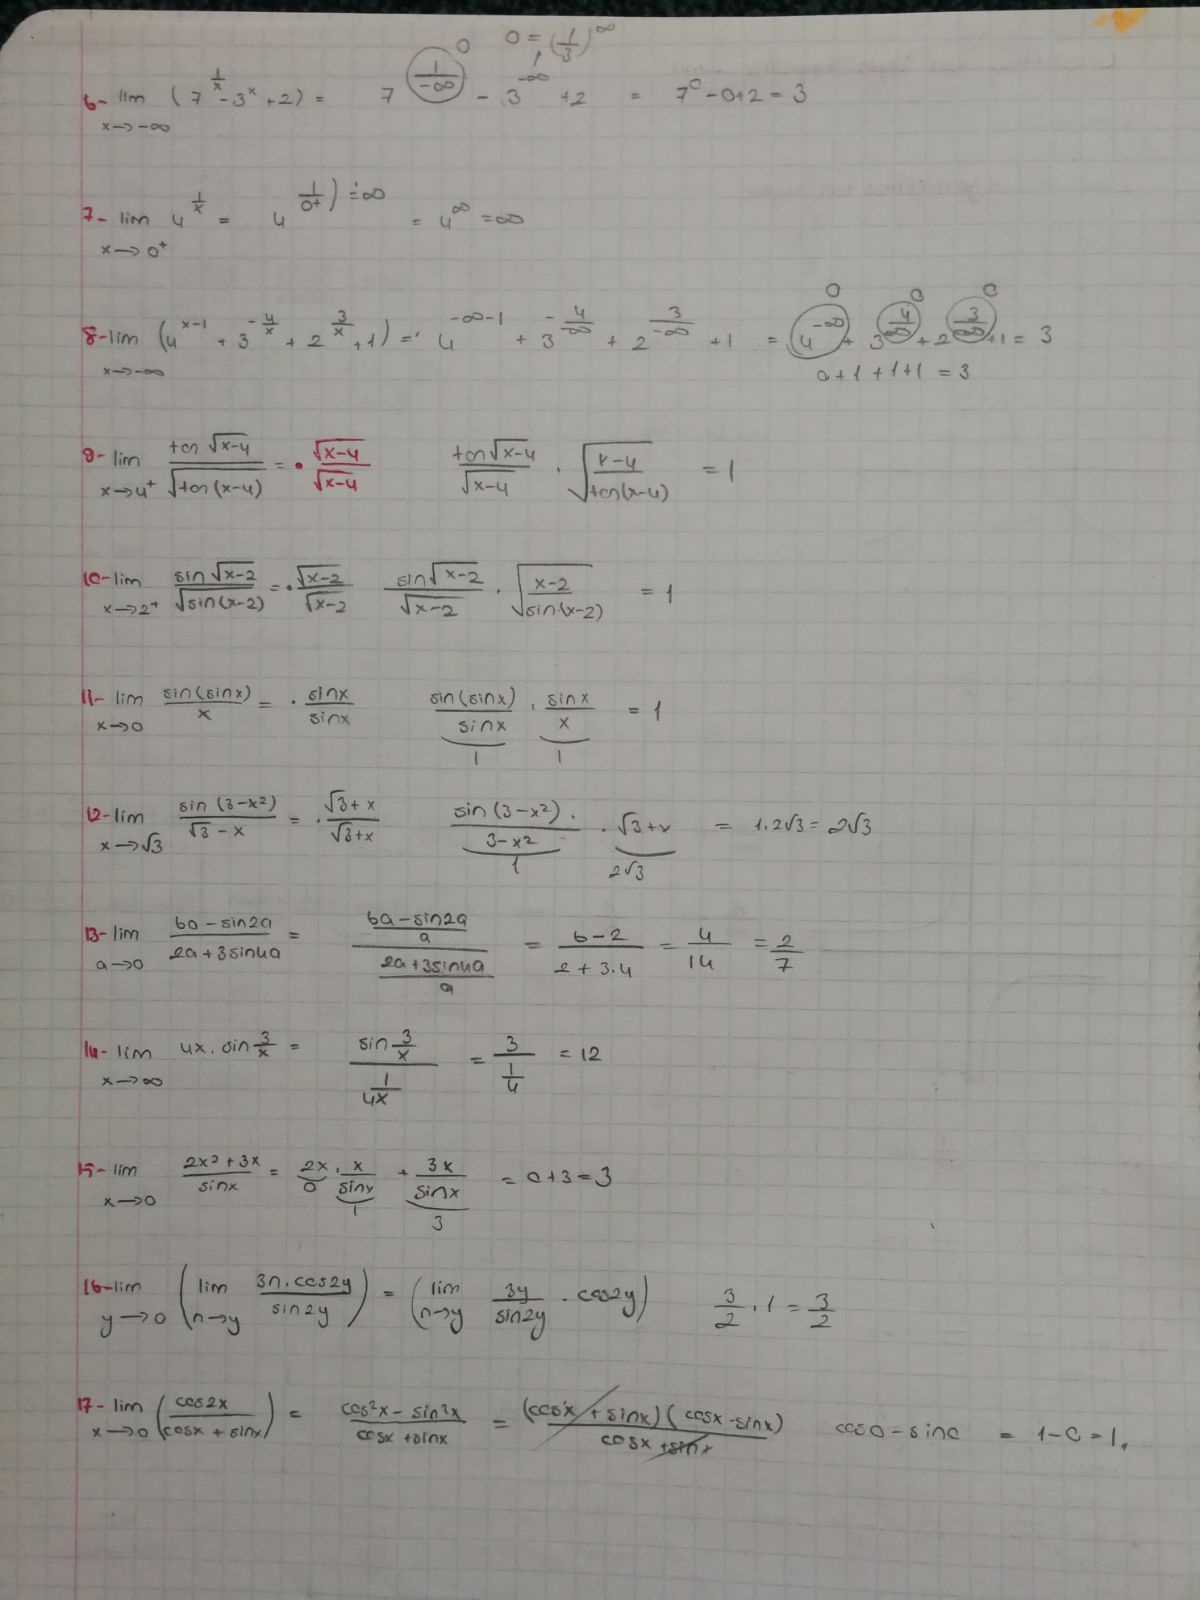 0 = (1/3)^∞
6- lim x→-∞ (7^(1/x) - 3^x + 2) = 7^(1/-∞) 0 - 3^-∞ + 2 = 7^0 - 0 + 2 = 3
7- lim x→0⁺ 4^(1/x) = 4^(1/0⁺) = ∞ = 4^∞ = ∞
8- lim x→-∞ (4^(x-1) + 3^(-4/x) + 2^(3/x) + 1) = 4^(-∞-1) + 3^(-4/-∞) + 2^(3/-∞) + 1 = 4^-∞ 0 + 3^(4/∞) 0 + 2^(3/-∞) 0 + 1 = 3
0 + 1 + 1 + 1 = 3
9- lim x→4⁺ tan√(x-4) / √(tan(x-4)) = · √(x-4) / √(x-4) tan√(x-4) / √(x-4) · √((x-4) / tan(x-4)) = 1
10- lim x→2⁺ sin√(x-2) / √(sin(x-2)) = · √(x-2) / √(x-2) sin√(x-2) / √(x-2) · √((x-2) / sin(x-2)) = 1
11- lim x→0 sin(sinx) / x = · sinx / sinx sin(sinx) / sinx · sinx / x = 1
1 1
12- lim x→√3 sin(3-x²) / (√3-x) = · (√3+x) / (√3+x) sin(3-x²) · / (3-x²) · √3+x = 1.2√3 = 2√3
1 2√3
13- lim a→0 (6a - sin2a) / (2a + 3sin4a) = ((6a - sin2a) / a) / ((2a + 3sin4a) / a) = (6-2) / (2+3.4) = 4/14 = 2/7
14- lim x→∞ 4x. sin 3/x = (sin 3/x) / (1/4x) = 3 / (1/4) = 12
15- lim x→0 (2x² + 3x) / sinx = 2x · x / sinx + 3x / sinx = 0 + 3 = 3
0 1 3
16- lim y→0 (lim n→y 3n.cos2y / sin2y) = (lim n→y 3y / sin2y · cos2y) 3/2 . 1 = 3/2
17- lim x→0 (cos2x / (cosx + sinx)) = (cos²x - sin²x) / (cosx + sinx) = (cosx + sinx)(cosx - sinx) / (cosx + sinx) cos0 - sin0 = 1-0 = 1,